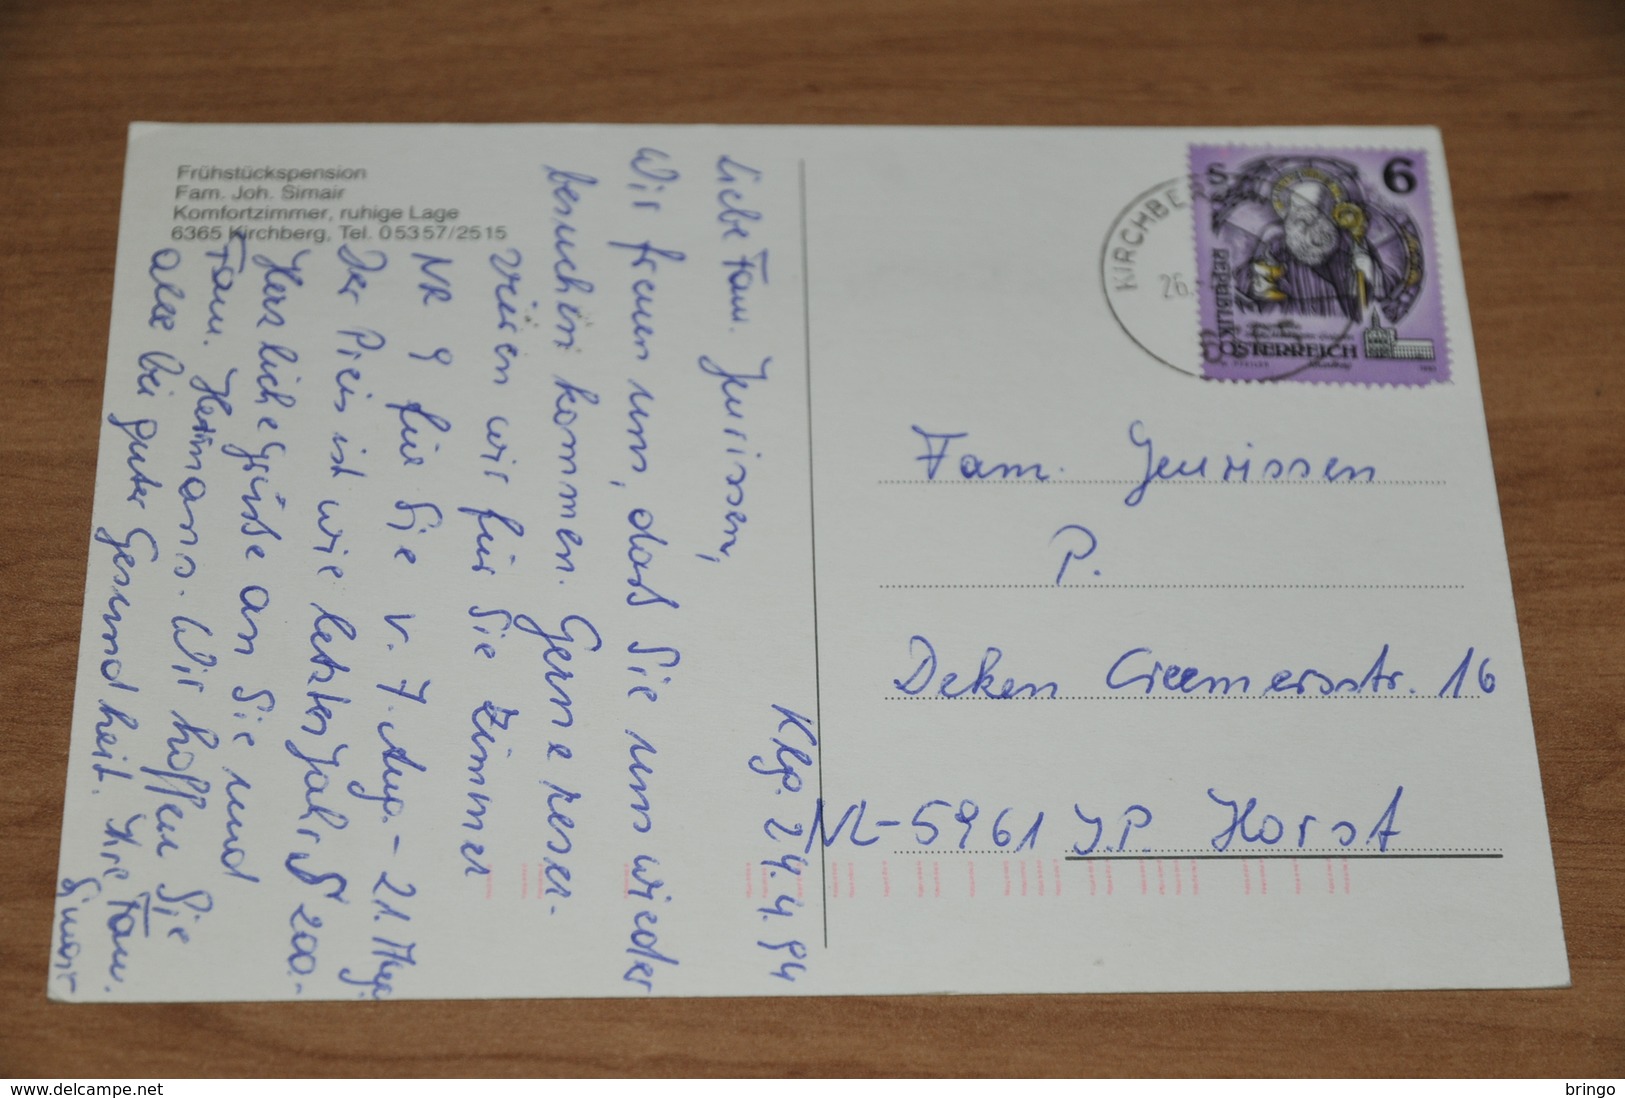 Frühstückspension
Fam. Joh. Simair
Komfortzimmer, ruhige Lage
6365 Kirchberg, Tel. 05357/2515
Kbg. 24.4.94
Liebe Fam. Jurissen,
Wir freuen uns, daß Sie uns wieder
besuchen kommen. Gerne reser-
vieren wir für Sie Zimmer
NR 9 für Sie v. 7. Aug. - 21. Aug.
Der Preis ist wie letztes Jahr S 200.-
Herzliche Grüße an Sie und
Fam. Hermans. Wir hoffen Sie
alle bei guter Gesundheit. Ihre Fam.
Simair
KIRCHBE
26.
S 6
REPUBLIK
ÖSTERREICH
Fam. Jeurissen
P.
Deken Creemersstr. 16
NL-5961 J.P. Horst
www.delcampe.net
bringo